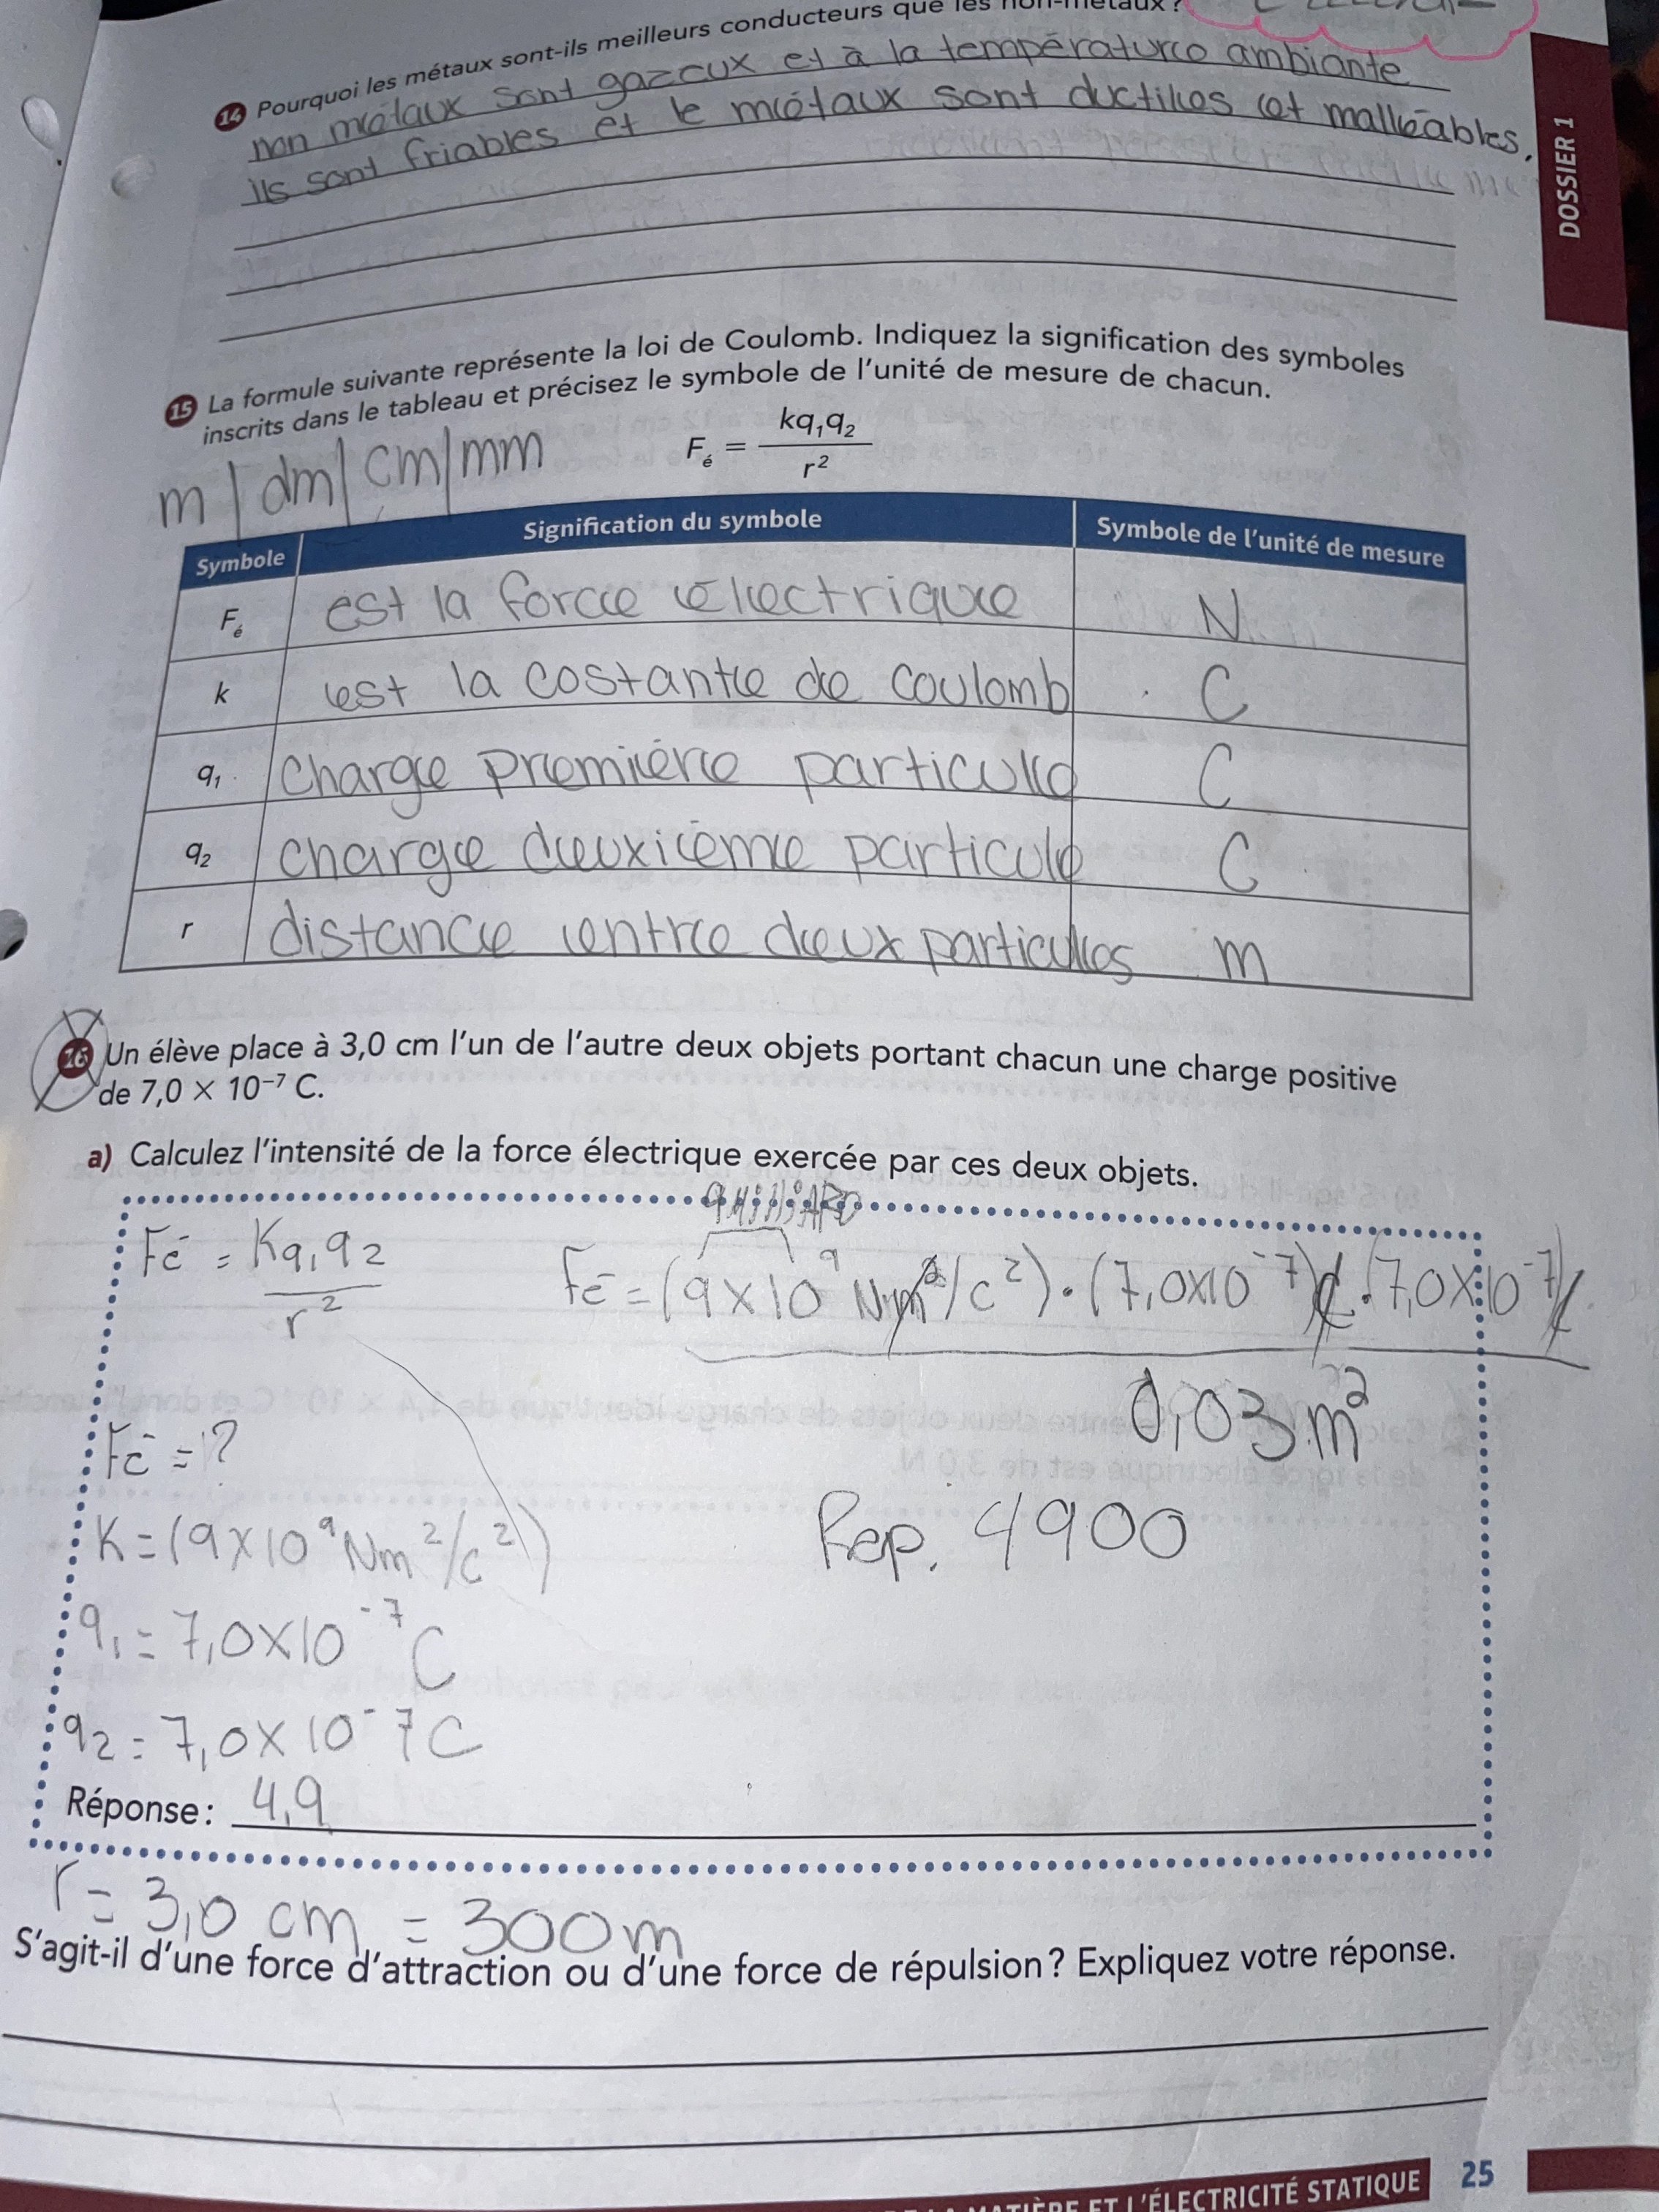 14 Pourquoi les métaux sont-ils meilleurs conducteurs que les non-métaux ?
non métaux sont gazeux et à la température ambiante
ils sont friables et le métaux sont ductiles et malléables.
DOSSIER 1
15 La formule suivante représente la loi de Coulomb. Indiquez la signification des symboles
inscrits dans le tableau et précisez le symbole de l'unité de mesure de chacun.
m | dm | cm | mm
Fé = kq₁q₂ / r²
Symbole Signification du symbole Symbole de l'unité de mesure
Fé est la force électrique N
k est la costante de coulomb C
q₁ charge première particule C
q₂ charge deuxième particule C
r distance entre deux particules m
16 Un élève place à 3,0 cm l'un de l'autre deux objets portant chacun une charge positive
de 7,0 × 10⁻⁷ C.
a) Calculez l'intensité de la force électrique exercée par ces deux objets.
9 MilliARD
Fé = Kq₁q₂ / r²
Fé = (9×10⁹ Nm²/c²)·(7,0×10⁻⁷)C·(7,0×10⁻⁷)C / 0,03m²
Fé = ?
Rep. 4900
K = (9×10⁹ Nm²/c²)
q₁ = 7,0×10⁻⁷ C
q₂ = 7,0×10⁻⁷ C
Réponse : 4,9
r = 3,0 cm = 300m
S'agit-il d'une force d'attraction ou d'une force de répulsion ? Expliquez votre réponse.
MATIÈRE ET L'ÉLECTRICITÉ STATIQUE 25